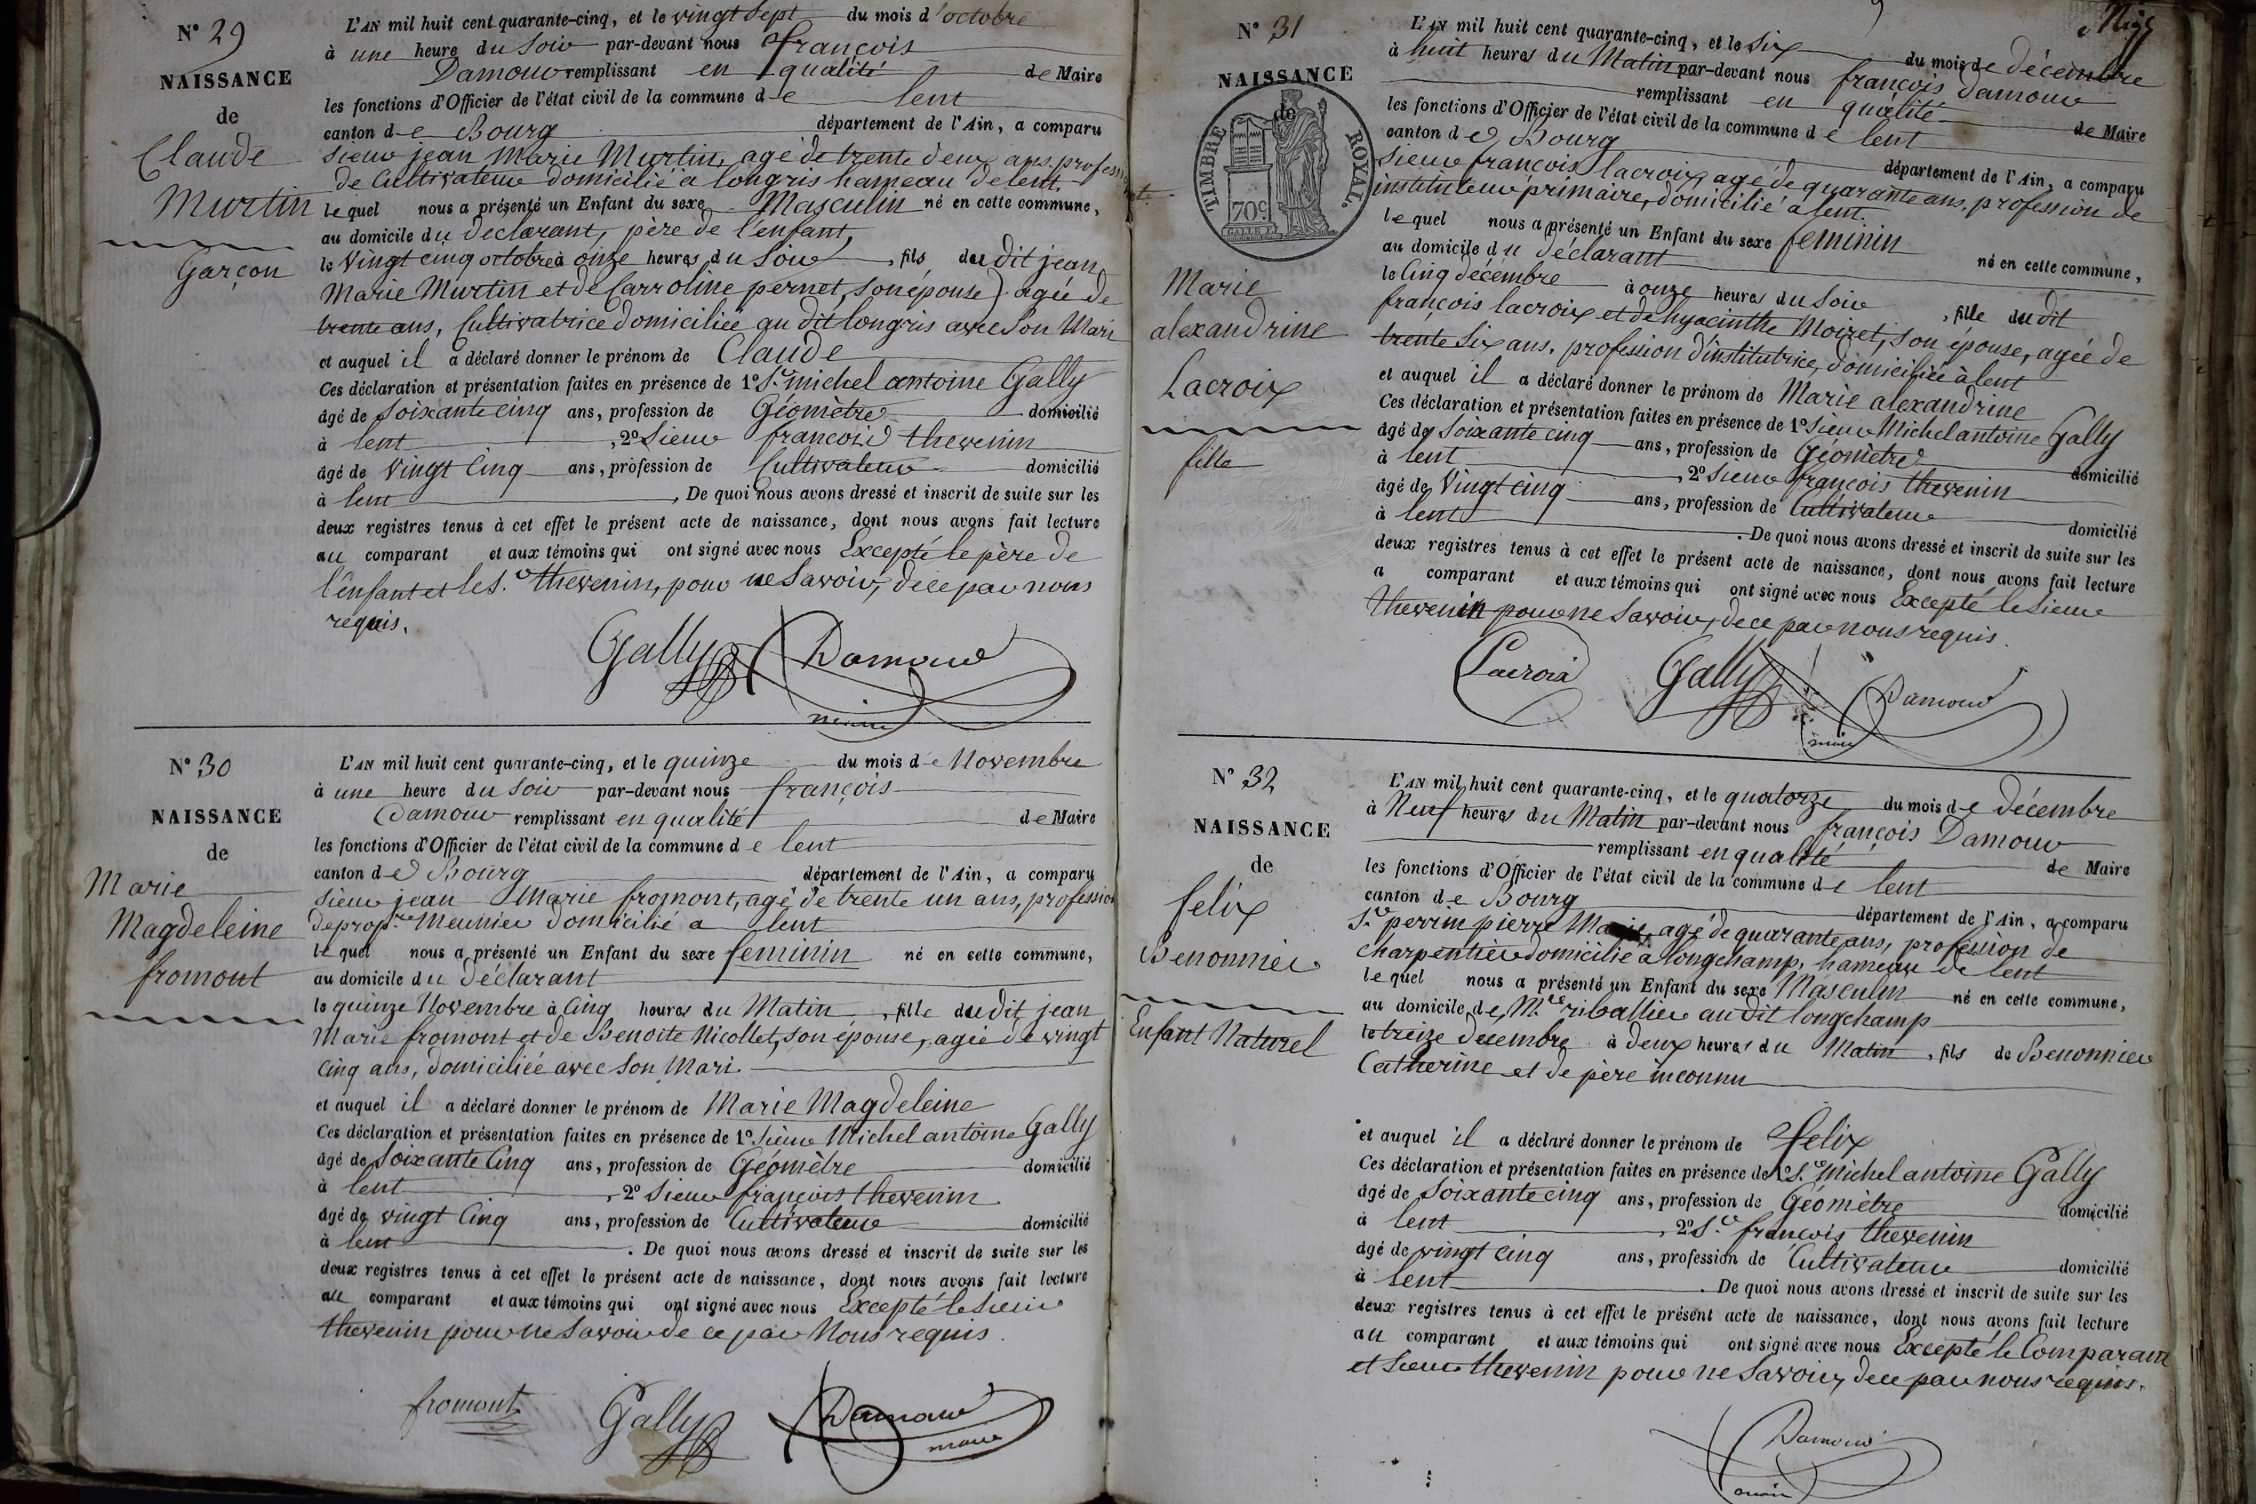 N° 29
NAISSANCE
de
Claude
Murtin
Garçon
L'AN mil huit cent quarante-cinq, et le vingt sept du mois d'octobre
à une heure du Soir par-devant nous françois
Damour remplissant en qualité de Maire
les fonctions d'Officier de l'état civil de la commune de lent
canton de Bourg département de l'Ain, a comparu
Sieur jean Marie Murtin, agé de trente deux ans, profession
de Cultivateur domicilié a longris hameau de lent.
lequel nous a présenté un Enfant du sexe Masculin né en cette commune,
au domicile du declarant, père de l'enfant,
le Vingt cinq octobre à onze heures du Soir, fils dudit jean
Marie Murtin et de Carroline pernet, son épouse, agée de
trente ans, Cultivatrice domiciliée au dit longris avec Son Mari
et auquel il a déclaré donner le prénom de Claude
Ces déclaration et présentation faites en présence de 1° S.r michel antoine Gally
âgé de Soixante cinq ans, profession de Géomètre domicilié
à lent, 2° Sieur francois thevenin
âgé de vingt Cinq ans, profession de Cultivateur domicilié
à lent, De quoi nous avons dressé et inscrit de suite sur les
deux registres tenus à cet effet le présent acte de naissance, dont nous avons fait lecture
au comparant et aux témoins qui ont signé avec nous Excepté le père de
l'enfant et le S.r thevenin, pour ne Savoir, de ce par nous
requis.
Gally Damour
maire
N° 30
NAISSANCE
de
Marie
Magdeleine
fromont
L'AN mil huit cent quarante-cinq, et le quinze du mois de Novembre
à une heure du Soir par-devant nous françois
Damour remplissant en qualité de Maire
les fonctions d'Officier de l'état civil de la commune de lent
canton de Bourg département de l'Ain, a comparu
Sieur jean Marie fromont, agé de trente un ans, profession
de prop.re Meunier domicilié a lent
lequel nous a présenté un Enfant du sexe feminin né en cette commune,
au domicile du déclarant
le quinze Novembre à Cinq heures du Matin, fille dudit jean
Marie fromont et de Benoite Nicollet, son épouse, agée de vingt
Cinq ans, domiciliée avec son Mari.
et auquel il a déclaré donner le prénom de Marie Magdeleine
Ces déclaration et présentation faites en présence de 1° Sieur Michel antoine Gally
âgé de Soixante Cinq ans, profession de Géomètre domicilié
à lent, 2° Sieur françois thevenin
âgé de vingt Cinq ans, profession de Cultivateur domicilié
à lent. De quoi nous avons dressé et inscrit de suite sur les
deux registres tenus à cet effet le présent acte de naissance, dont nous avons fait lecture
au comparant et aux témoins qui ont signé avec nous Excepté le Sieur
thevenin pour ne Savoir de ce par Nous requis.
fromont Gally Damour
maire
N° 31
NAISSANCE
de
TIMBRE ROYAL.
70c
Marie
alexandrine
Lacroix
fille
L'AN mil huit cent quarante-cinq, et le Six du mois de décembre
à huit heures du Matin par-devant nous françois Damour
remplissant en qualité de Maire
les fonctions d'Officier de l'état civil de la commune de lent
canton de Bourg département de l'Ain, a comparu
Sieur françois lacroix, agé de quarante ans, profession de
instituteur primaire, domicilié à lent.
lequel nous a présenté un Enfant du sexe feminin né en cette commune,
au domicile du déclarant
le Cinq décembre à onze heures du Soir, fille dudit
françois lacroix et de hyacinthe Moiret, son épouse, agée de
trente Six ans, profession d'institutrice, domiciliée à lent
et auquel il a déclaré donner le prénom de Marie alexandrine
Ces déclaration et présentation faites en présence de 1° Sieur Michel antoine Gally
âgé de Soixante cinq ans, profession de Géomètre domicilié
à lent, 2° Sieur françois thevenin
âgé de Vingt cinq ans, profession de Cultivateur domicilié
à lent. De quoi nous avons dressé et inscrit de suite sur les
deux registres tenus à cet effet le présent acte de naissance, dont nous avons fait lecture
a comparant et aux témoins qui ont signé avec nous Excepté le Sieur
thevenin pour ne Savoir, de ce par nous requis.
Lacroix Gally Damour
maire
N° 32
NAISSANCE
de
felix
Benonnier
Enfant Naturel
L'AN mil huit cent quarante-cinq, et le quatorze du mois de décembre
à Neuf heures du Matin par-devant nous françois Damour
remplissant en qualité de Maire
les fonctions d'Officier de l'état civil de la commune de lent
canton de Bourg département de l'Ain, a comparu
S.r perrin pierre Marie, agé de quarante ans, profession de
charpentier domicilié a longchamp, hameau de lent
lequel nous a présenté un Enfant du sexe Masculin né en cette commune,
au domicile de M.r riballier au dit longchamp
le treize decembre à deux heures du Matin, fils de Benonnier
Catherine et de père inconnu
et auquel il a déclaré donner le prénom de felix
Ces déclaration et présentation faites en présence de 1° S.r Michel antoine Gally
âgé de Soixante cinq ans, profession de Géomètre domicilié
à lent, 2° S.r françois thevenin
âgé de vingt cinq ans, profession de Cultivateur domicilié
à lent. De quoi nous avons dressé et inscrit de suite sur les
deux registres tenus à cet effet le présent acte de naissance, dont nous avons fait lecture
au comparant et aux témoins qui ont signé avec nous Excepté le Comparant
et Sieur thevenin pour ne Savoir, de ce par nous requis.
Damour
maire